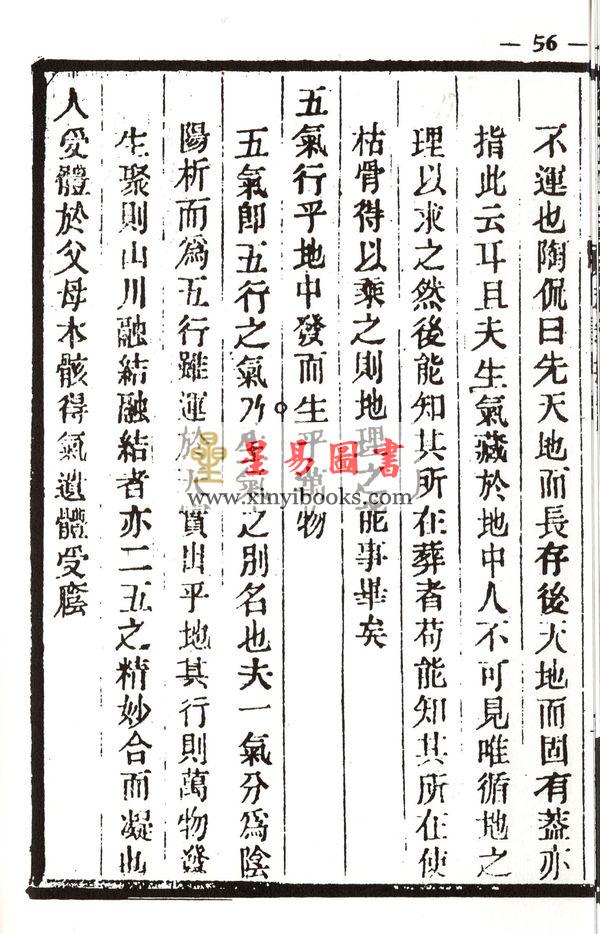 — 56 —
不運也陶侃曰先天地而長存後天地而固有蓋亦
指此云耳且夫生氣藏於地中人不可見唯循地之
理以求之然後能知其所在葬者苟能知其所在使
枯骨得以乘之則地理之能事畢矣
五氣行乎地中發而生乎萬物
五氣卽五行之氣乃生氣之別名也夫一氣分爲陰
陽析而爲五行雖運於天實出乎地其行則萬物發
生聚則山川融結融結者亦二五之精妙合而凝也
人受體於父母本骸得氣遺體受廕
星易圖書
www.xinyibooks.com